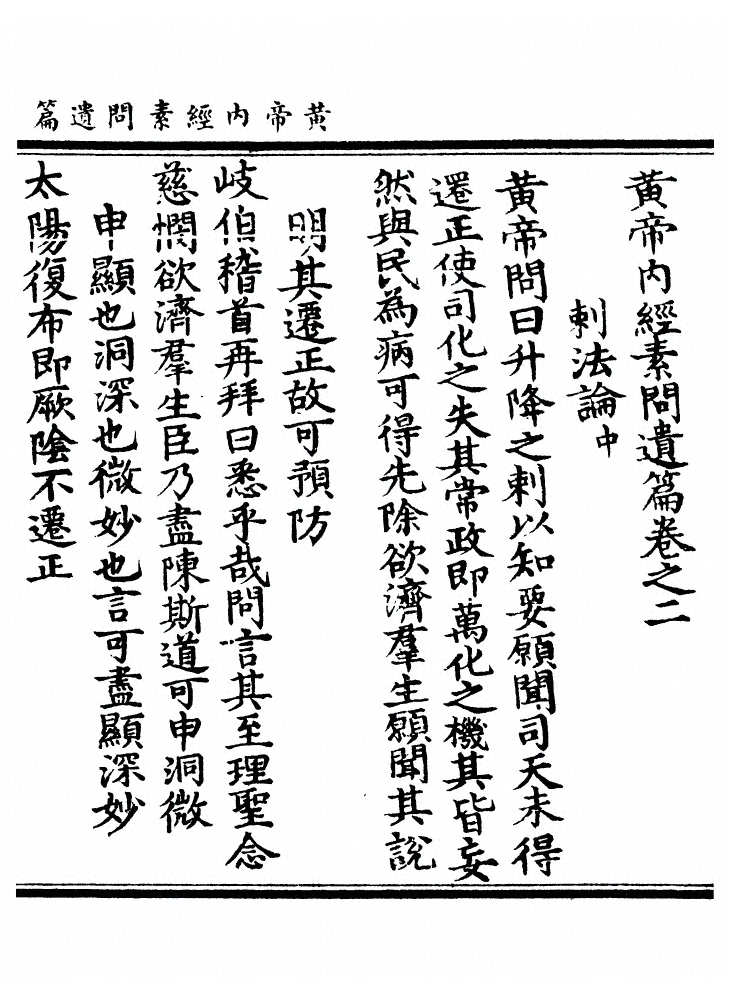 黄帝内經素問遺篇
黄帝内經素問遺篇卷之二
刺法論中
黄帝問曰升降之刺以知要願聞司天未得
遷正使司化之失其常政即萬化之機其皆妄
然與民為病可得先除欲濟羣生願聞其說
明其遷正故可預防
岐伯稽首再拜曰悉乎哉問言其至理聖念
慈憫欲濟羣生臣乃盡陳斯道可申洞微
申顯也洞深也微妙也言可盡顯深妙
太陽復布即厥陰不遷正